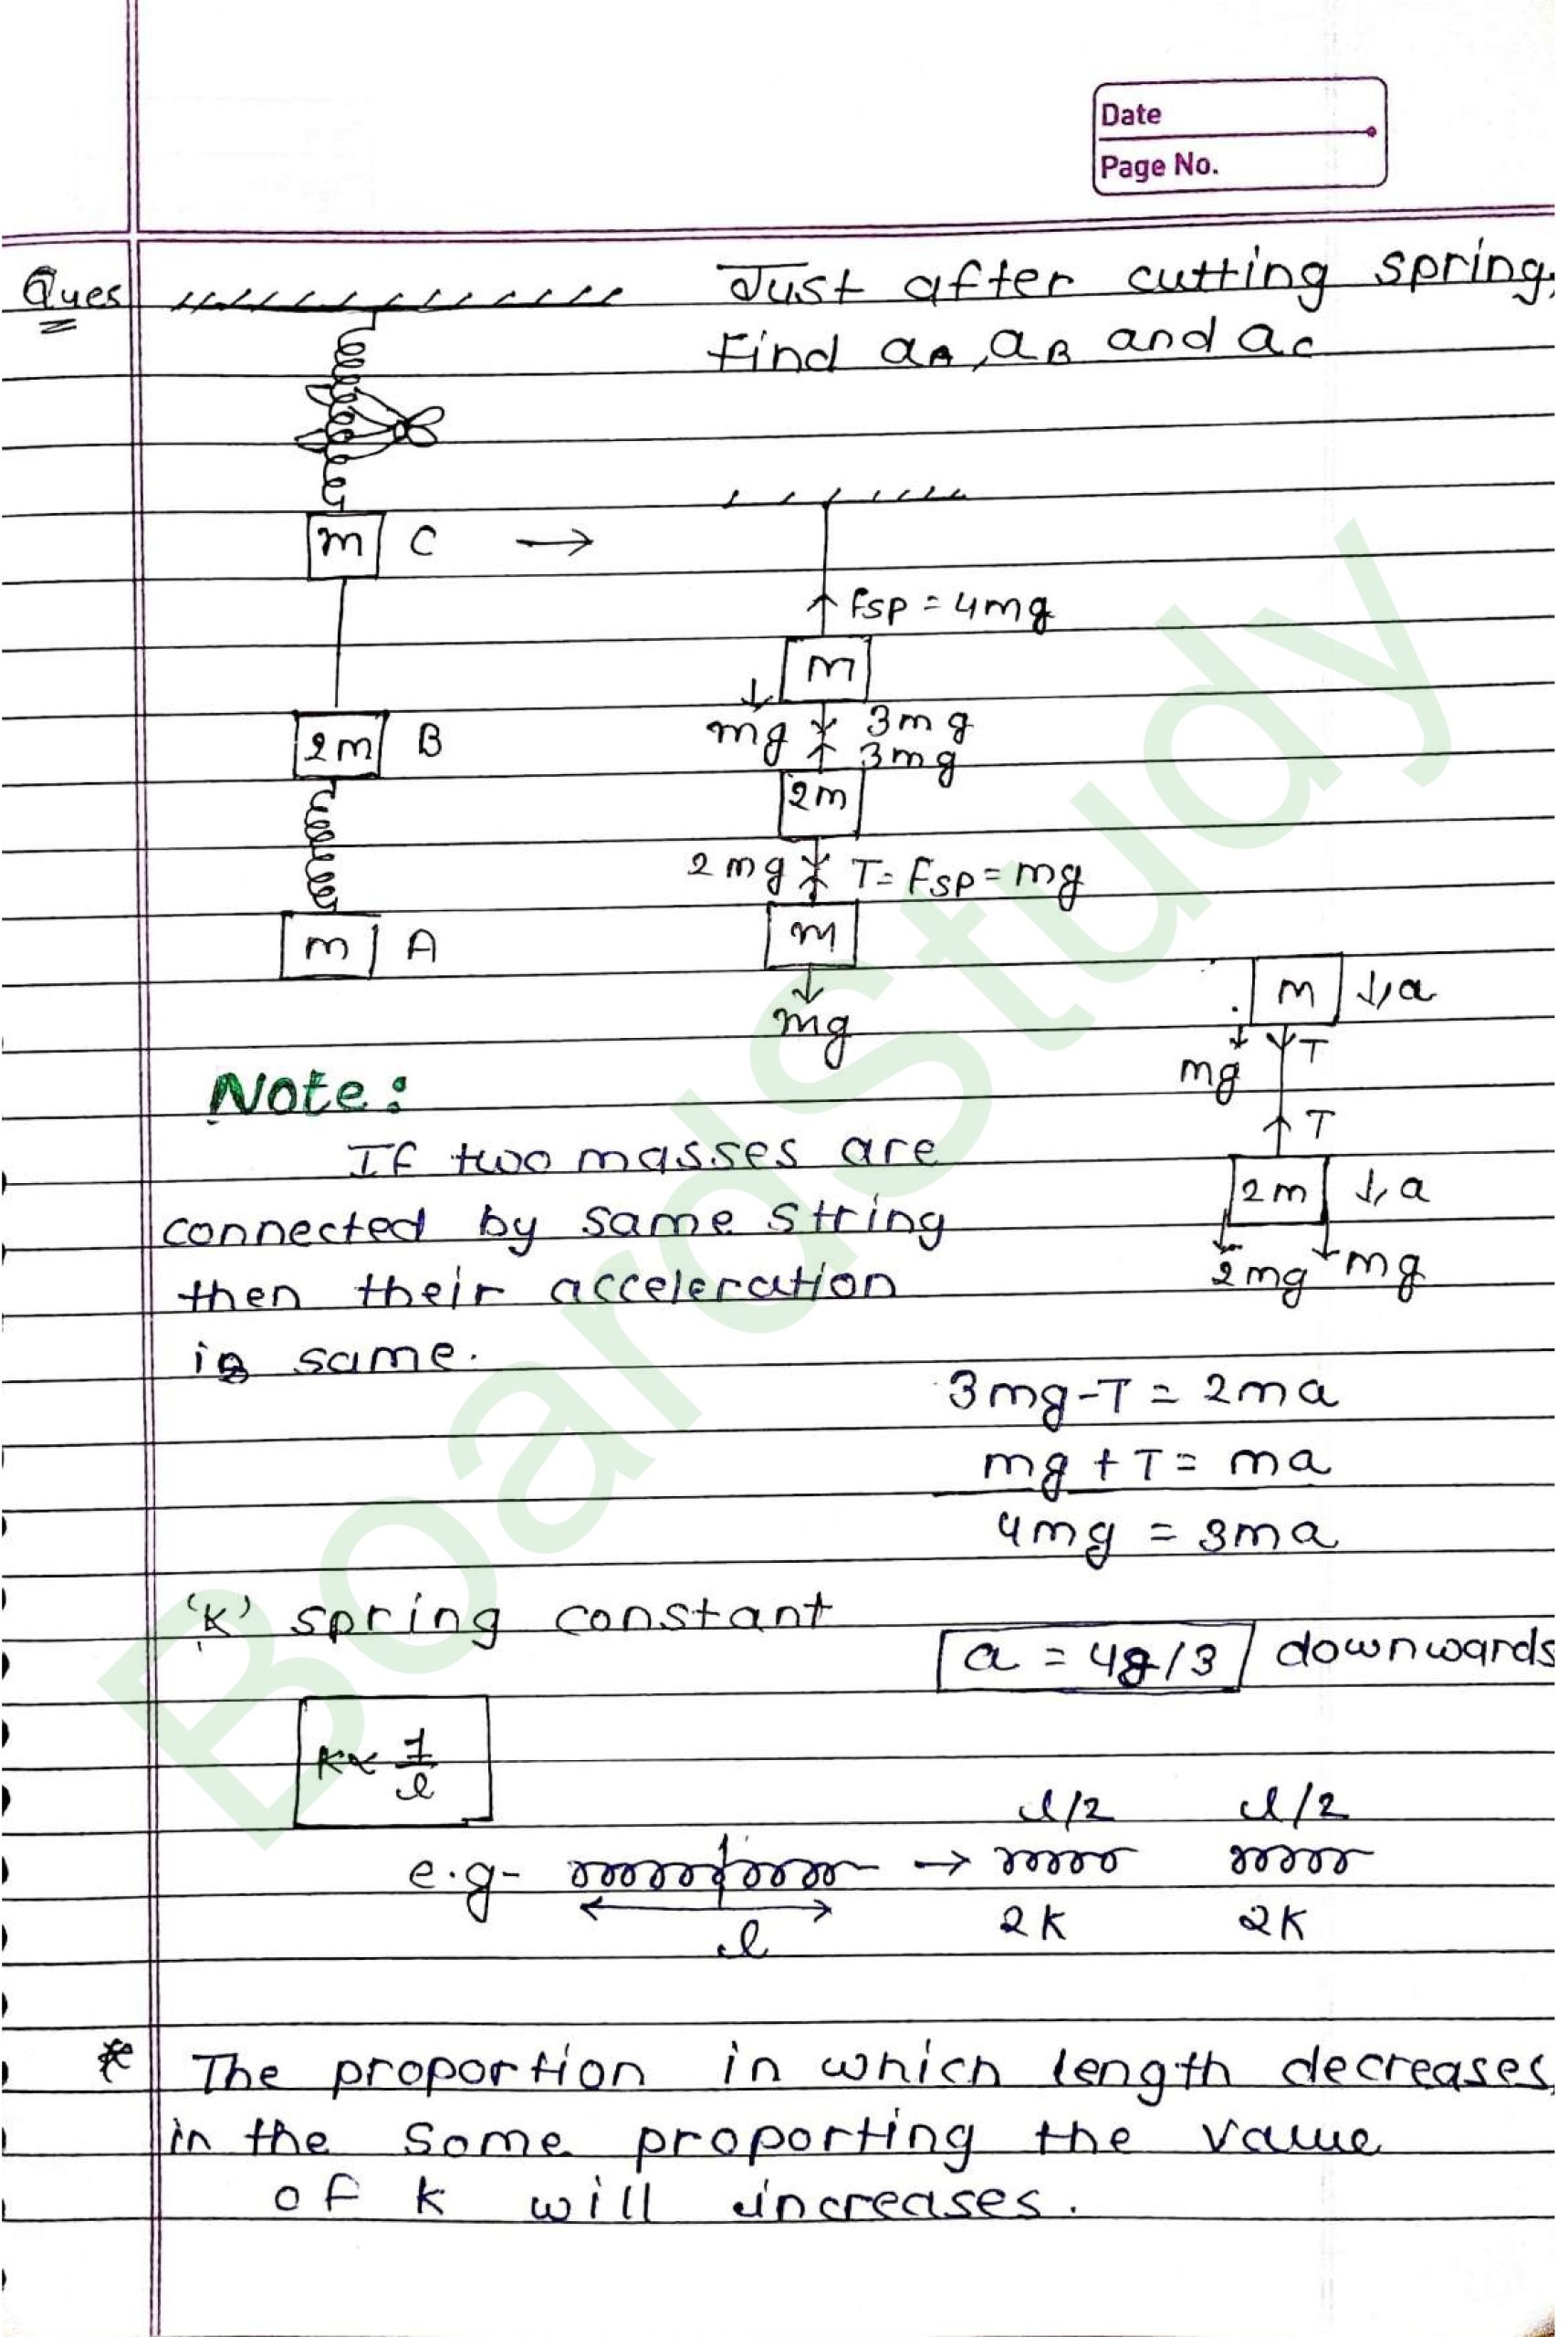 Date
Page No.
Ques Just after cutting spring,
Find aA, aB and aC
m C →
Fsp = 4mg
m
mg 3mg
2m B
3mg
2m
2mg T = Fsp = mg
m A
m
mg
m ↓,a
mg T
Note:
T
If two masses are
2m ↓,a
connected by same string
2mg mg
then their acceleration
is same.
3mg - T = 2ma
mg + T = ma
4mg = 3ma
'K' spring constant
a = 4g/3 downwards
K ∝ 1/l
l/2 l/2
e.g- →
l 2K 2K
* The proportion in which length decreases,
in the same proporting the value
of k will increases.
BoardStudy